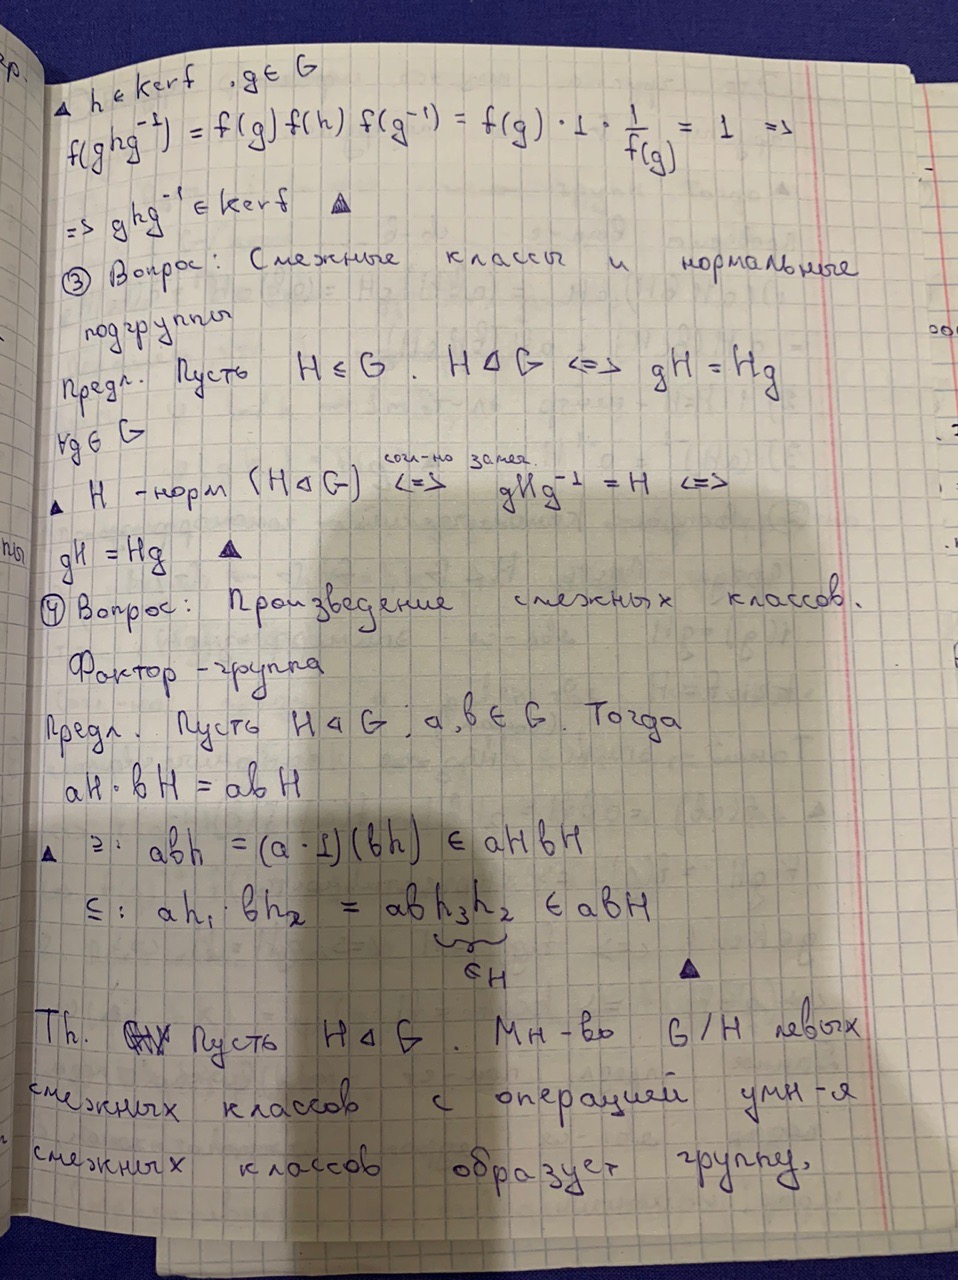 ▲ h ∈ Kerf, g ∈ G
f(ghg⁻¹) = f(g) f(h) f(g⁻¹) = f(g) · 1 · 1/f(g) = 1 =>
=> ghg⁻¹ ∈ Kerf ▲
③ Вопрос: Смежные классы и нормальные
подгруппы
Предл. Пусть H ≤ G. H ⊲ G <=> gH = Hg
∀g ∈ G
▲ H - норм (H ⊲ G) <=> gHg⁻¹ = H <=>
gH = Hg ▲
④ Вопрос: Произведение смежных классов.
Фактор - группа
Предл. Пусть H ⊲ G, a, b ∈ G. Тогда
aH · bH = abH
▲ ⊇: abh = (a · 1)(bh) ∈ aHbH
⊆: ah₁ · bh₂ = abh₃h₂ ∈ abH
∈ H ▲
Th. Пусть H ⊲ G. Мн-во G/H левых
смежных классов с операцией умн-я
смежных классов образует группу,